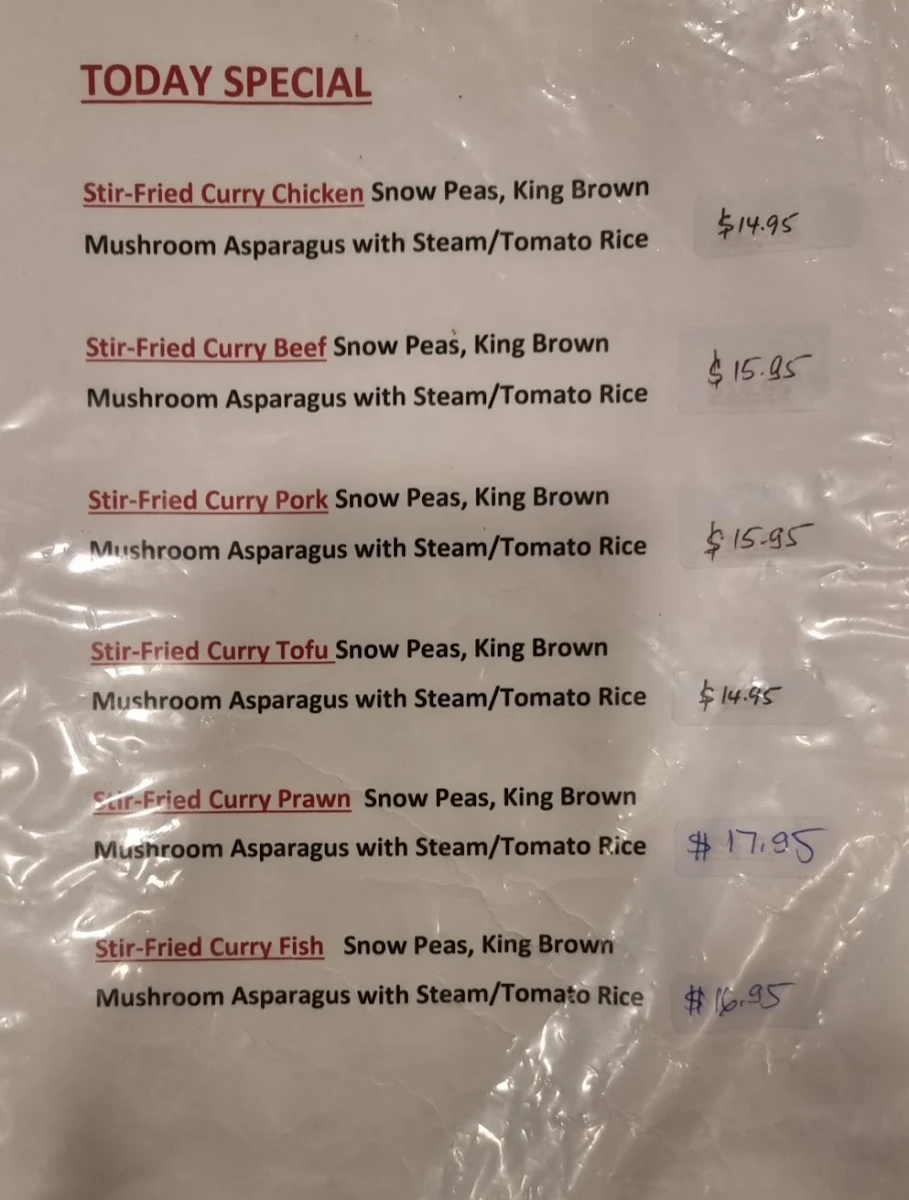 TODAY SPECIAL
Stir-Fried Curry Chicken Snow Peas, King Brown
Mushroom Asparagus with Steam/Tomato Rice $14.95
Stir-Fried Curry Beef Snow Peas, King Brown
Mushroom Asparagus with Steam/Tomato Rice $15.95
Stir-Fried Curry Pork Snow Peas, King Brown
Mushroom Asparagus with Steam/Tomato Rice $15.95
Stir-Fried Curry Tofu Snow Peas, King Brown
Mushroom Asparagus with Steam/Tomato Rice $14.95
Stir-Fried Curry Prawn Snow Peas, King Brown
Mushroom Asparagus with Steam/Tomato Rice $17.95
Stir-Fried Curry Fish Snow Peas, King Brown
Mushroom Asparagus with Steam/Tomato Rice $16.95